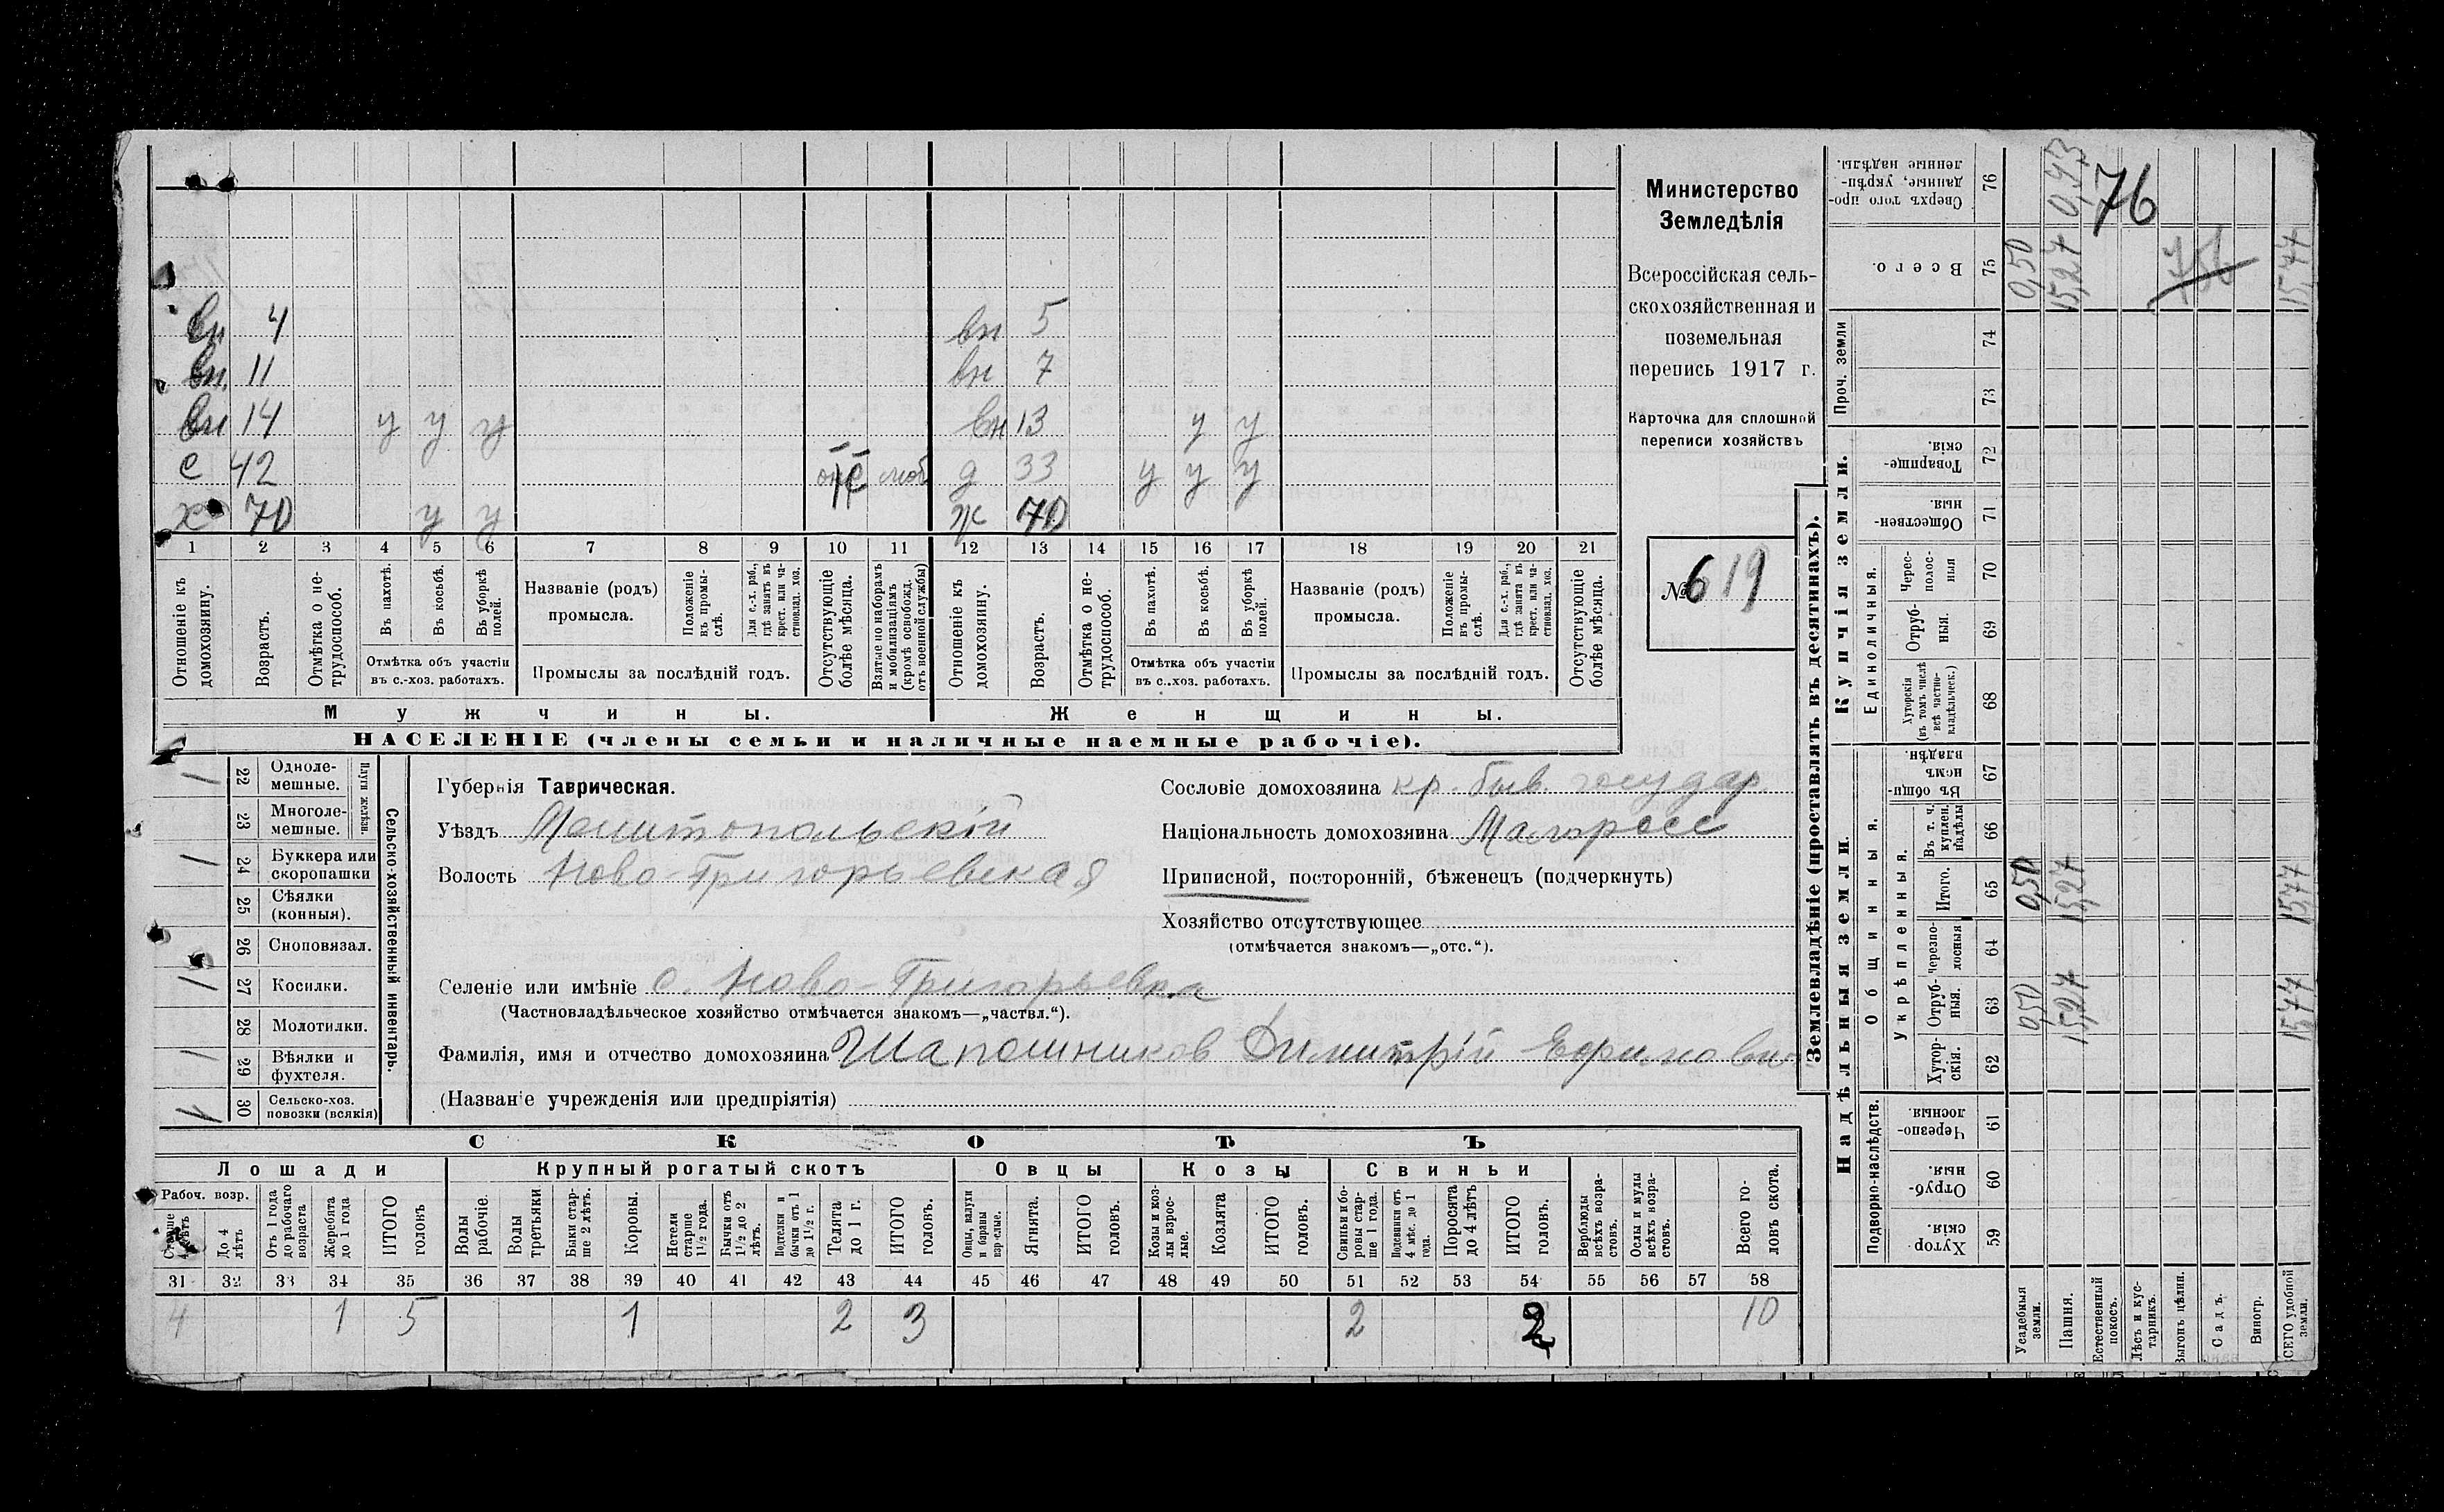 вн 4 вн 5
вн 11 вн 7
вн 14 у у у вн 13 у у
с 42 моб д 33 у у у
х 70 у у ж 70
1 2 3 4 5 6 7 8 9 10 11 12 13 14 15 16 17 18 19 20 21
Отношеніе къ домохозяину.
Возрастъ.
Отмѣтка о не-трудоспособ.
Въ пахотѣ.
Въ косьбѣ.
Въ уборкѣ полей.
Отмѣтка объ участіи
въ с.-хоз. работахъ.
Названіе (родъ)
промысла.
Положеніе въ промы-слѣ.
Для с.-х. раб., гдѣ занятъ въ крест. или ча-стновлад. хоз.
Промыслы за послѣдній годъ.
Отсутствующіе болѣе мѣсяца.
Взятые по наборамъ и мобилизаціямъ (кромѣ освобожд. отъ военной службы)
Отношеніе къ домохозяину.
Возрастъ.
Отмѣтка о не-трудоспособ.
Въ пахотѣ.
Въ косьбѣ.
Въ уборкѣ полей.
Отмѣтка объ участіи
въ с.-хоз. работахъ.
Названіе (родъ)
промысла.
Положеніе въ промы-слѣ.
Для с.-х. раб., гдѣ занята въ крест. или ча-стновлад. хоз.
Промыслы за послѣдній годъ.
Отсутствующіе болѣе мѣсяца.
Мужчины. Женщины.
НАСЕЛЕНІЕ (члены семьи и наличные наемные рабочіе).
Министерство
Земледѣлія
Всероссійская сель-
скохозяйственная и
поземельная
перепись 1917 г.
Карточка для сплошной
переписи хозяйствъ
№ 619
22 Одноле-мешные. 1
23 Многоле-мешные.
Плуги желѣзн.
24 Буккера или скоропашки 1
25 Сѣялки (конныя).
26 Сноповязал.
27 Косилки. 1
28 Молотилки.
29 Вѣялки и фухтеля. 1
30 Сельско-хоз. повозки (всякія)
Сельско-хозяйственный инвентарь.
Губернія Таврическая.
Уѣздъ Мелитопольскій
Волость Ново-Григорьевская
Сословіе домохозяина кр. быв. государ.
Національность домохозяина Малоросс
Приписной, посторонній, бѣженецъ (подчеркнуть)
Хозяйство отсутствующее
(отмѣчается знакомъ—„отс.“).
Селеніе или имѣніе с. Ново-Григорьевка
(Частновладѣльческое хозяйство отмѣчается знакомъ—„частвл.“).
Фамилія, имя и отчество домохозяина Шапошников Димитрій
(Названіе учрежденія или предпріятія)
СКОТЪ
Лошади Крупный рогатый скотъ Овцы Козы Свиньи
Рабоч. возр.
Старше 4 лѣтъ
До 4 лѣтъ
Отъ 1 года до рабочаго возраста
Жеребята до 1 года
ИТОГО головъ
Волы рабочіе.
Волы третьяки
Быки стар-ше 2 лѣтъ.
Коровы.
Нетели старше 1½ года.
Бычки отъ 1½ до 2 лѣтъ.
Подтелки и бычки отъ 1 до 1½ г.
Телята до 1 г.
ИТОГО головъ.
Овцы, валухи и бараны взрослые.
Ягнята.
ИТОГО головъ.
Козы и коз-лы взрос-лые.
Козлята
ИТОГО головъ.
Свиньи и бо-ровы стар-ше 1 года.
Подсвинки отъ 4 мѣс. до 1 года.
Поросята до 4 лѣтъ
ИТОГО головъ.
Верблюды всѣхъ возра-стовъ.
Ослы и мулы всѣхъ возра-стовъ.
Всего го-ловъ скота.
31 32 33 34 35 36 37 38 39 40 41 42 43 44 45 46 47 48 49 50 51 52 53 54 55 56 57 58
4 1 5 1 2 3 2 2 10
Землевладѣніе (проставлять въ десятинахъ).
Надѣльныя земли. Купчія земли. Проч. земли
Подворно-наслѣдств. Общинныя. Укрѣпленныя. Единоличныя.
Хутор-скія. 59
Отруб-ныя. 60
Черезпо-лосныя 61
Хутор-скія. 62
Отруб-ныя. 63 0,50 15,27 15,77
Черезпо-лосныя 64
Итого. 65 0,50 15,27 15,77
Въ т. ч. куплен. надѣлы 66
Въ общи-номъ владѣн. 67
Хуторскія (въ томъ числѣ всѣ частно-владѣльческ.) 68
Отруб-ныя. 69
Черес-полос-ныя 70
Обществен-ныя 71
Товарище-скія. 72
73
74
Всего. 75 0,50 15,27 756 15,77
Сверхъ того про-данные, укрѣп-ленные надѣлы. 76 0,93 76
Усадебныя земли.
Пашня.
Естественный покосъ.
Лѣсъ и кус-тарникъ.
Выгонъ цѣлин.
Садъ.
Виногр.
ВСЕГО удобной земли.